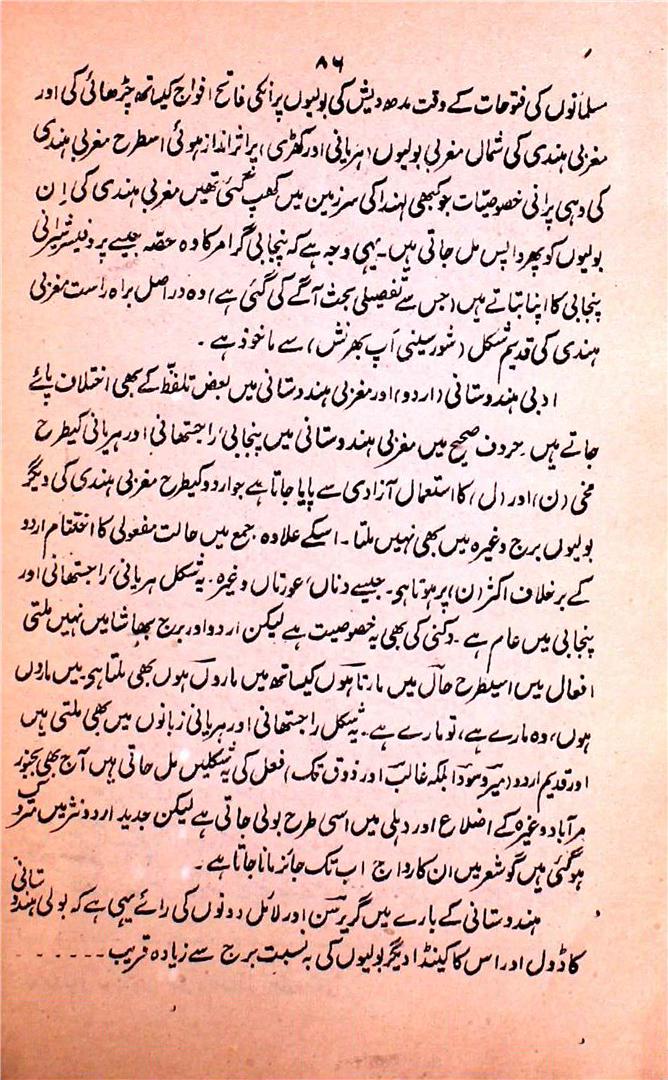 ۸۶
مسلمانوں کی فتوحات کے وقت مدھ دیش کی بولیوں پر انکی فاتح افواج کیساتھ چڑھائی کی اور
مغربی ہندی کی شمال مغربی بولیوں (ہریانی اور کھڑی) پر اثر انداز ہوئی اسطرح مغربی ہندی
کی وہی پرانی خصوصیّات جو کبھی لہندا کی سرزمین میں کھپ گئی تھیں مغربی ہندی کی اِن
بولیوں کو پھر واپس مل جاتی ہیں۔ یہی وجہ ہے کہ پنجابی گرامر کا وہ حصّہ جیسے پروفیسر شیرانی
پنجابی کا اپنا بتاتے ہیں (جس سے تفصیلی بحث آگے کی گئی ہے) وہ دراصل براہ راست مغربی
ہندی کی قدیم شکل (شورسینی اَپ بھرنش) سے ماخوذ ہے ۔
ادبی ہندوستانی (اردو) اور مغربی ہندوستانی میں بعض تلفّظ کے بھی اختلاف پائے
جاتے ہیں۔ حروف صحیح میں مغربی ہندوستانی میں پنجابی، راجتھانی اور ہریانی کیطرح
مخی (ن) اور (ل) کا استعمال آزادی سے پایا جاتا ہے جو اردو کیطرح مغربی ہندی کی دیگر
بولیوں برج وغیرہ میں بھی نہیں ملتا۔ اسکے علاوہ جمع میں حالت مفعولی کا اختتام اردو
کے برخلاف اکثر (ن) پر ہوتا ہی۔ جیسے دناں، عورتاں وغیرہ۔ یہ شکل ہریانی، راجتھانی اور
پنجابی میں عام ہے۔ دکنی کی بھی یہ خصوصیت ہے لیکن اردو اور برج بھاشا میں نہیں ملتی
افعال میں اسیطرح حال میں مارتا ہوں کیساتھ میں ماروں ہوں بھی ملتا ہی۔ میں ماروں
ہوں، وہ مارے ہے، تو مارے ہے۔ یہ شکل راجتھانی اور ہریانی زبانوں میں بھی ملتی ہیں
اور قدیم اردو (میر و سودا بلکہ غالب اور ذوق تک) فعل کی یہ شکلیں مل جاتی ہیں آج بھی بجنور
مرآباد وغیرہ کے اضلاع اور دہلی میں اسی طرح بولی جاتی ہے لیکن جدید اردو نثر میں متروک
ہو گئی ہیں گو شعر میں ان کا رواج اب تک جائز مانا جاتا ہے ۔
ہندوستانی کے بارے میں گریرسن اور لائل دونوں کی رائے یہی ہے کہ بولی ہندوستانی
کا ڈول اور اس کا کینڈا دیگر بولیوں کی بہ نسبت برج سے زیادہ قریب - - - - - -